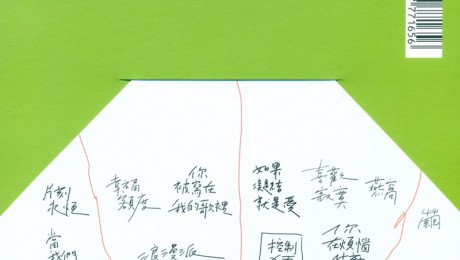 771656
片刻
永恆
幸福
額度
你
被寫在
我的歌裡
如果
凝結
就是愛
喜歡
寂寞
燕窩
當
我們
浪漫派
控制
你
在煩惱